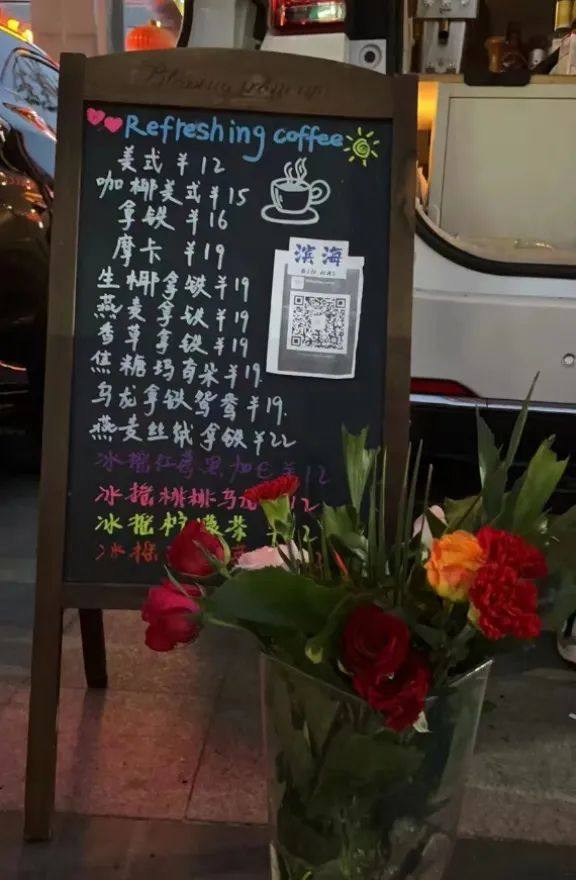 Refreshing coffee
美式 ¥12
咖椰美式 ¥15
拿铁 ¥16
摩卡 ¥19
生椰拿铁 ¥19
燕麦拿铁 ¥19
香草拿铁 ¥19
焦糖玛奇朵 ¥19.
乌龙拿铁鸳鸯 ¥19.
燕麦丝绒拿铁 ¥22
滨海
冰摇红莓黑加仑 ¥12
冰摇桃桃乌龙 12
冰摇柠檬茶 12
冰摇